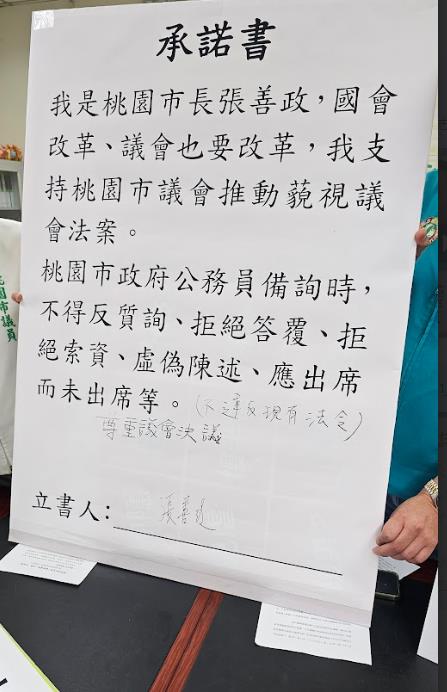 承諾書
我是桃園市長張善政，國會
改革、議會也要改革，我支
持桃園市議會推動藐視議
會法案。
桃園市政府公務員備詢時，
不得反質詢、拒絕答覆、拒
絕索資、虛偽陳述、應出席
而未出席等。(不違反現有法令)
尊重議會決議
立書人：張善政
園市議員